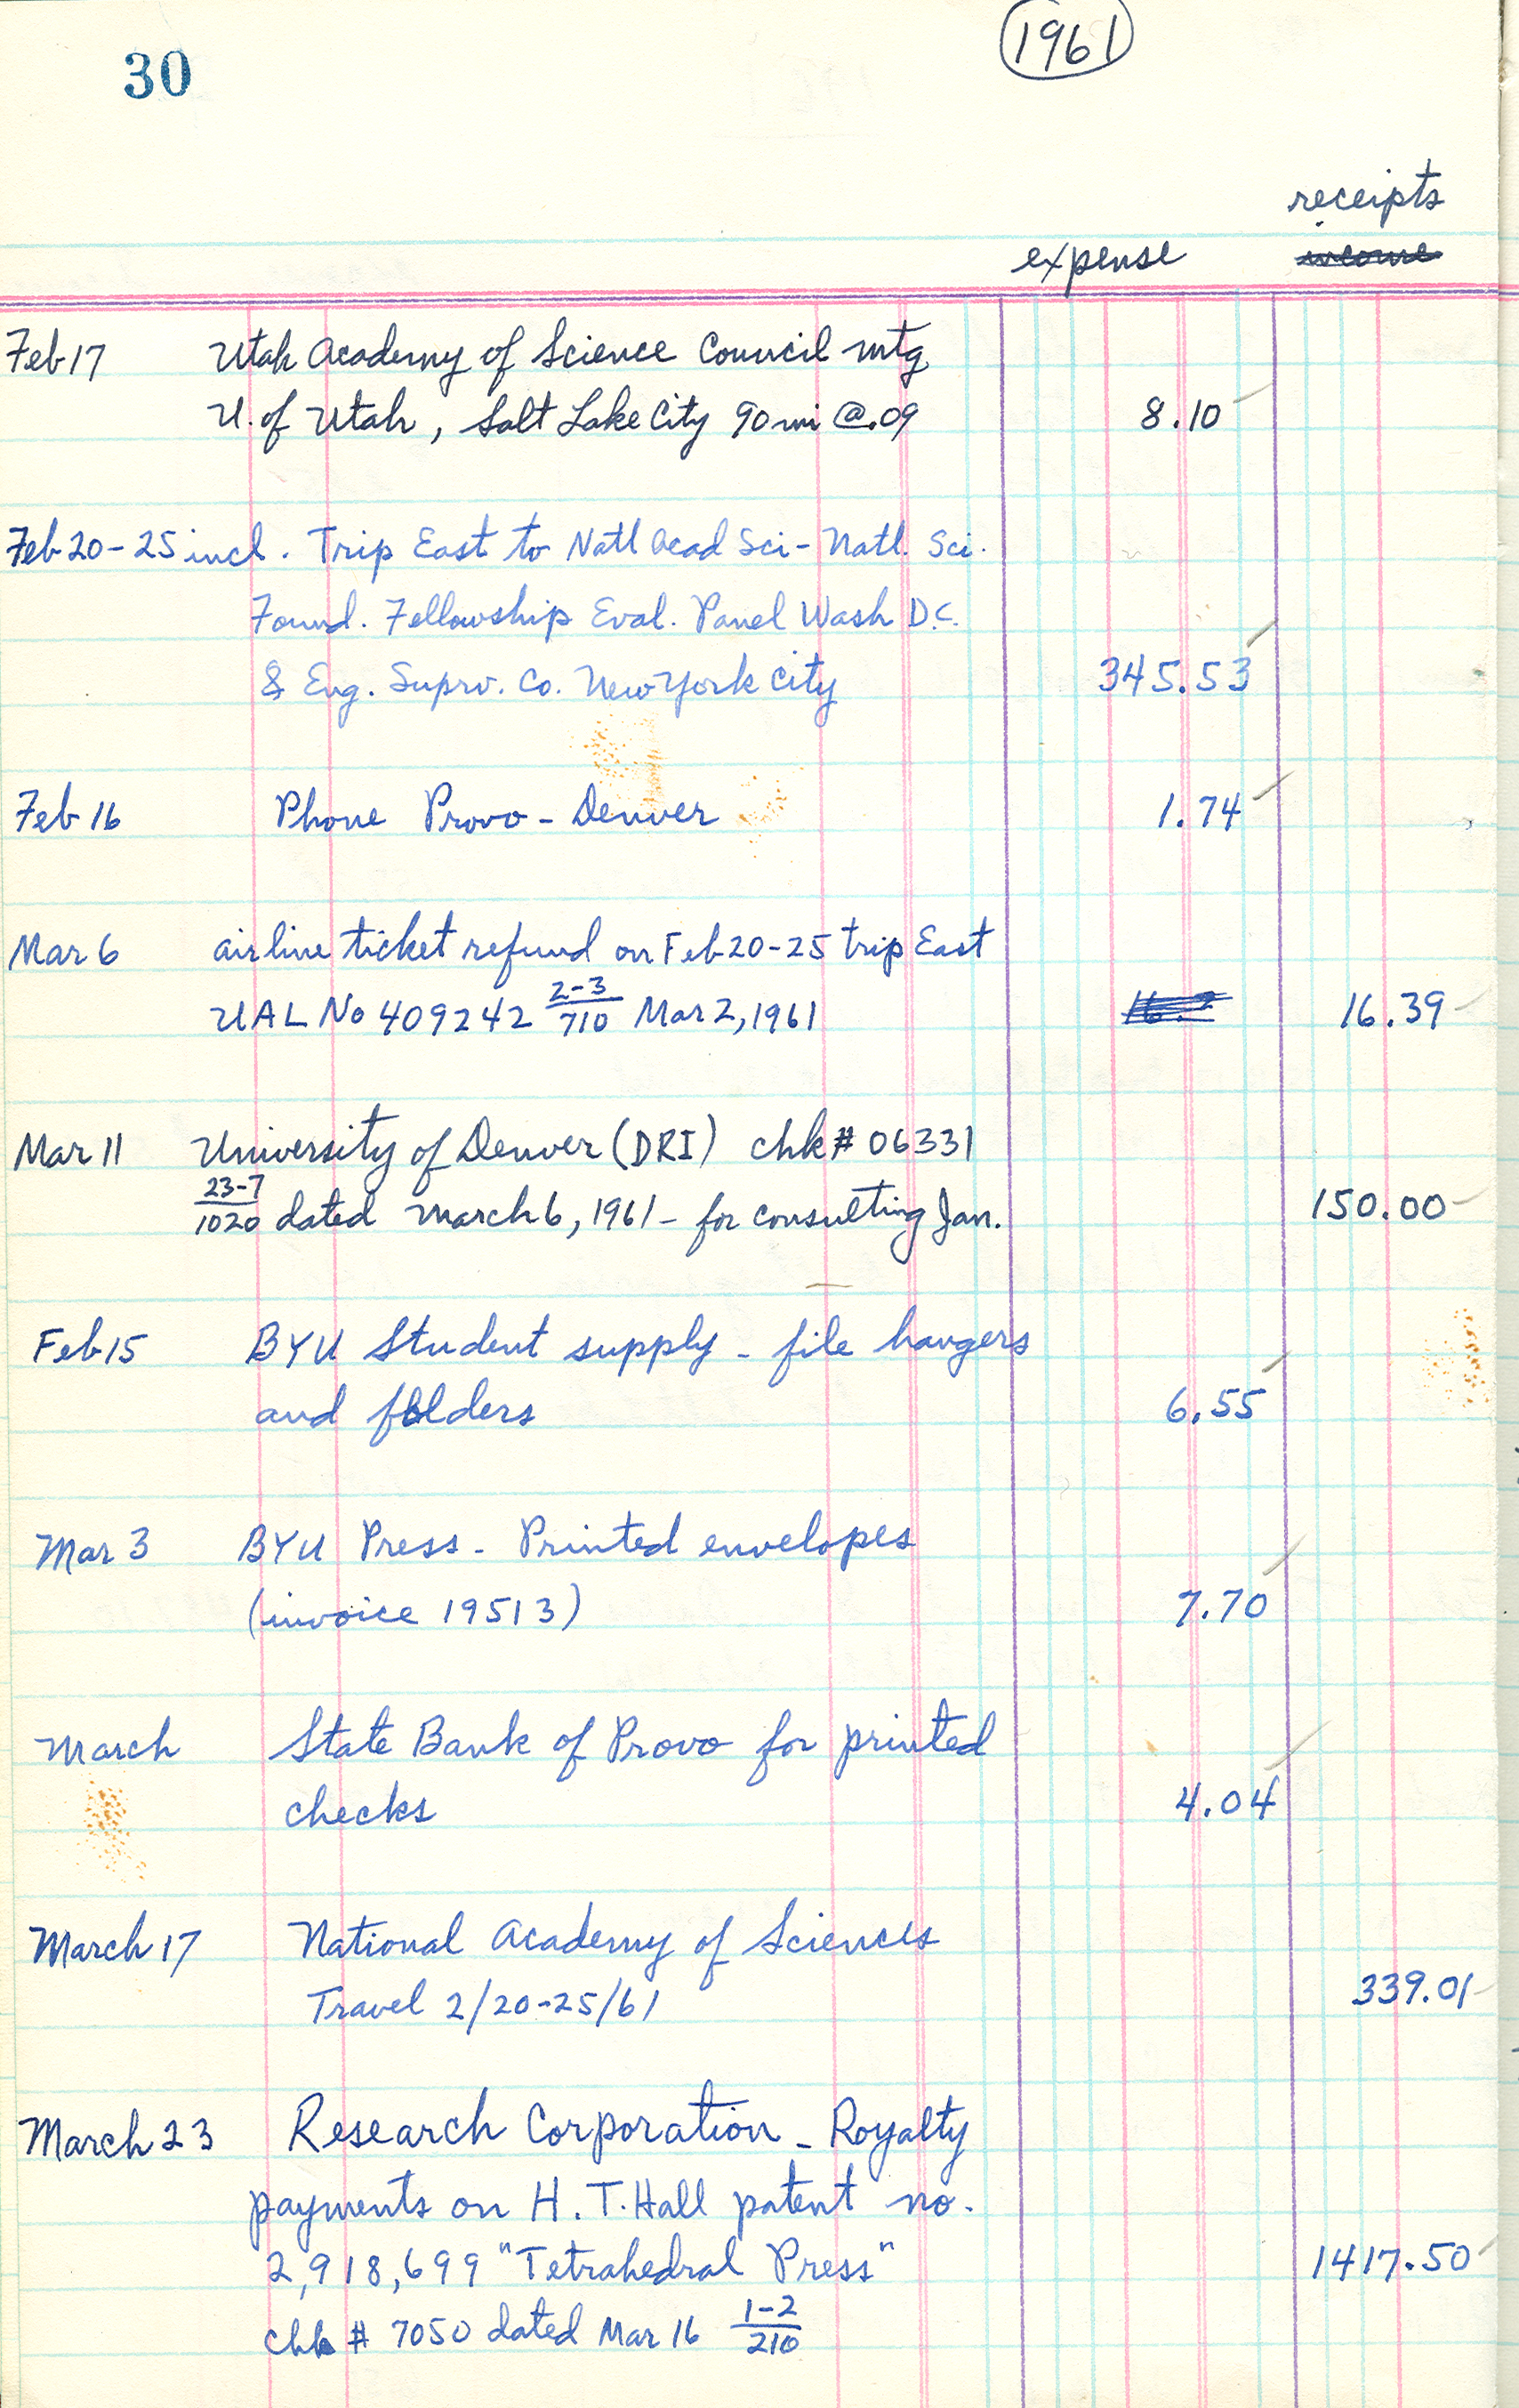 30
1961
receipts
expense income
Feb 17 Utah Academy of Science Council mtg
U. of Utah, Salt Lake City 90 mi @.09 8.10
Feb 20-25 incl. Trip East to Natl Acad Sci - Natl. Sci.
Found. Fellowship Eval. Panel Wash D.C.
& Eng. Suprv. Co. New York City 345.53
Feb 16 Phone Provo - Denver 1.74
Mar 6 airline ticket refund on Feb 20-25 trip East
UAL No 409242 2-3/710 Mar 2, 1961 16.39
Mar 11 University of Denver (DRI) chk # 06331
23-7/1020 dated March 6, 1961 - for consulting Jan. 150.00
Feb 15 BYU Student supply - file hangers
and folders 6.55
Mar 3 BYU Press - Printed envelopes
(invoice 19513) 7.70
March State Bank of Provo for printed
checks 4.04
March 17 National Academy of Sciences
Travel 2/20-25/61 339.01
March 23 Research Corporation - Royalty
payments on H. T. Hall patent no.
2,918,699 "Tetrahedral Press" 1417.50
chk # 7050 dated Mar 16 1-2/210